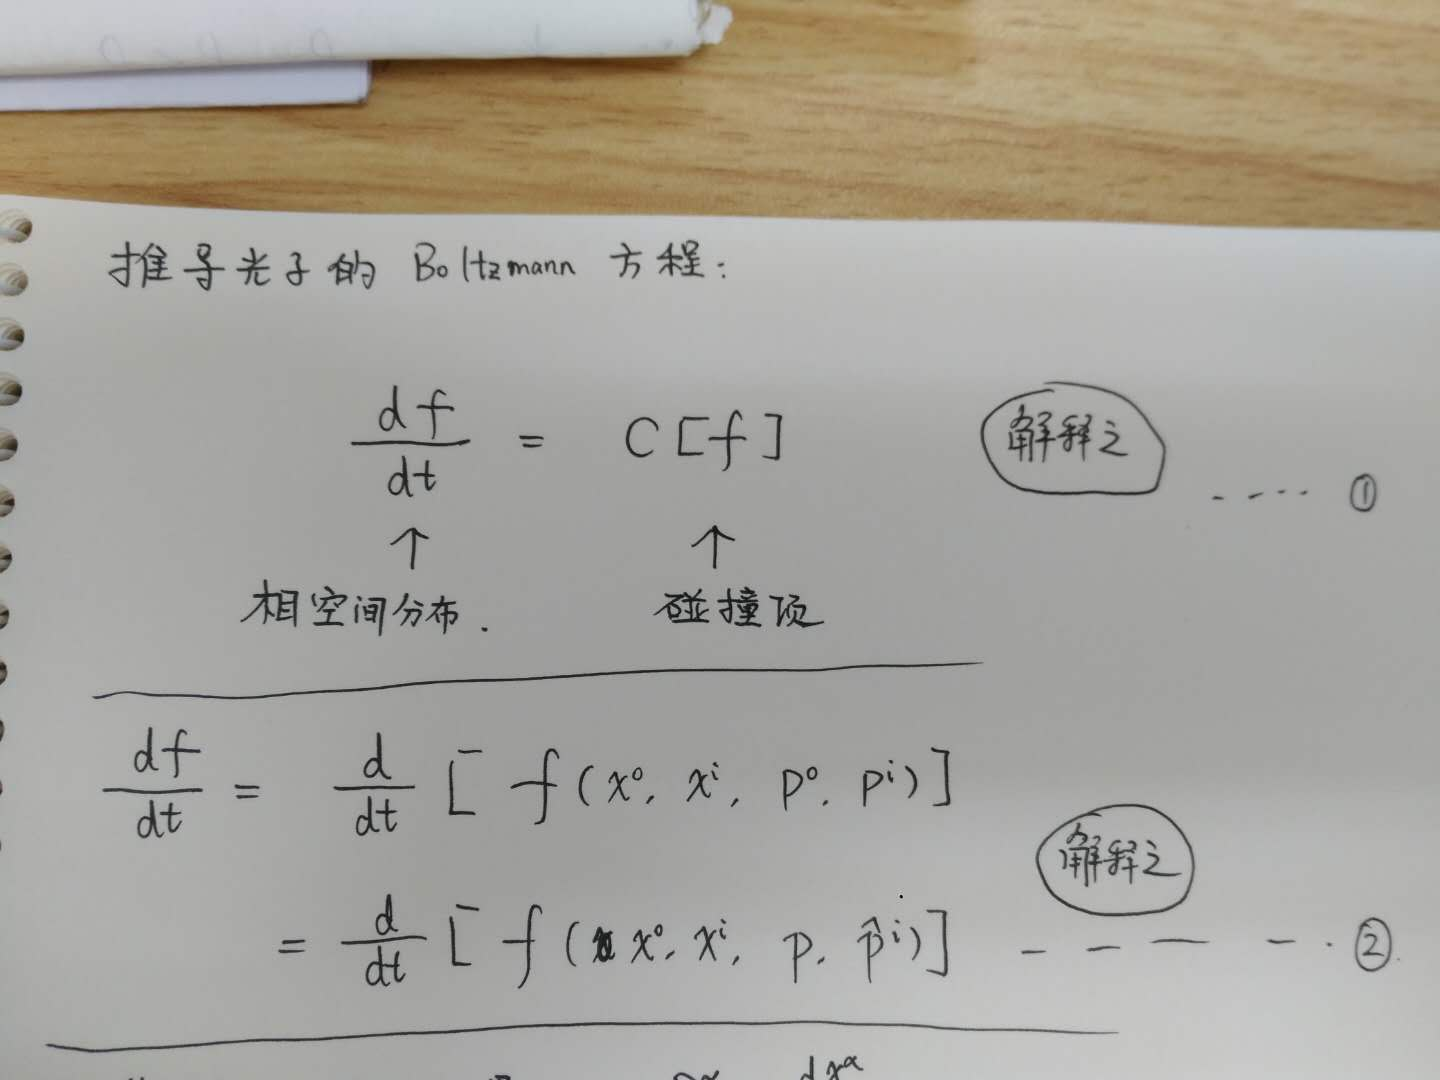 推导光子的 Boltzmann 方程:
df/dt = C[f] 解释之 ---- ①
↑ ↑
相空间分布. 碰撞项
df/dt = d/dt [ f(x⁰, xⁱ, p⁰, pⁱ)]
解释之
= d/dt [ f(x⁰, xⁱ, p, p̂ⁱ)] - - - - . ②.
dxᵅ